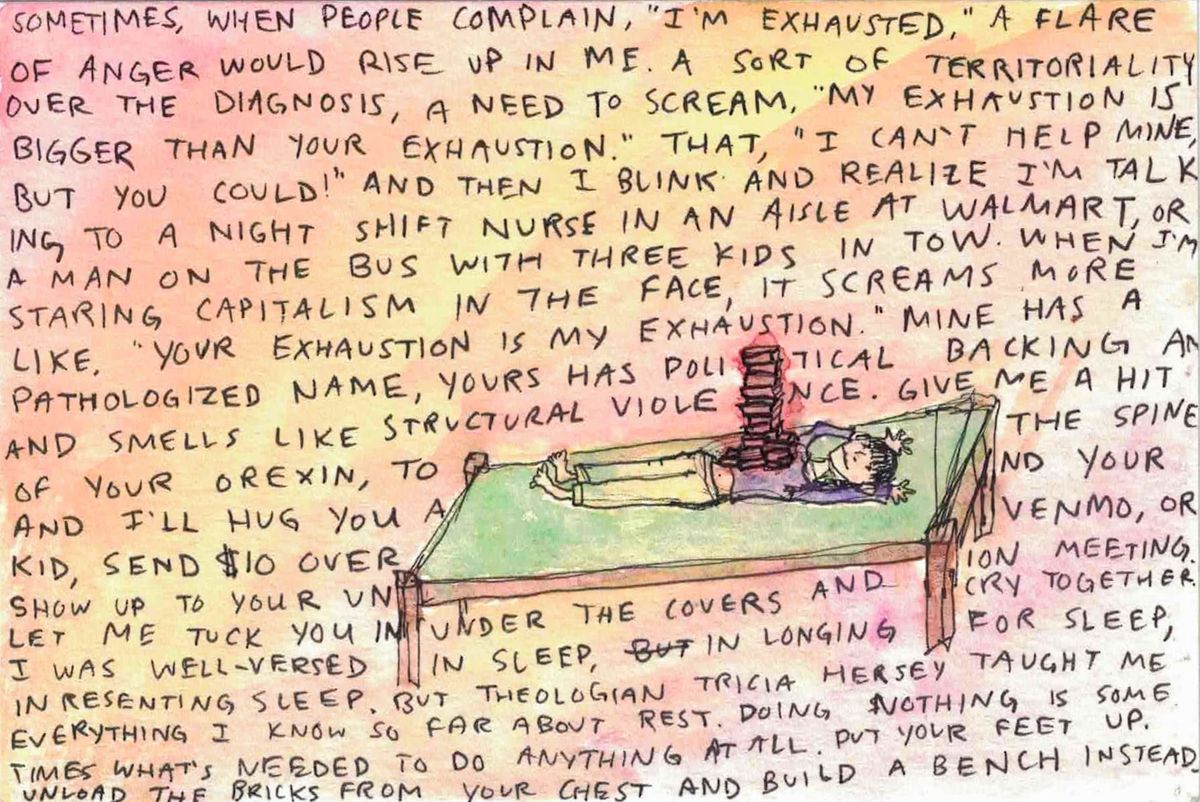 SOMETIMES, WHEN PEOPLE COMPLAIN, "I'M EXHAUSTED," A FLARE
OF ANGER WOULD RISE UP IN ME. A SORT OF TERRITORIALITY
OVER THE DIAGNOSIS, A NEED TO SCREAM, "MY EXHAUSTION IS
BIGGER THAN YOUR EXHAUSTION." THAT, "I CAN'T HELP MINE,
BUT YOU COULD!" AND THEN I BLINK AND REALIZE I'M TALK
ING TO A NIGHT SHIFT NURSE IN AN AISLE AT WALMART, OR
A MAN ON THE BUS WITH THREE KIDS IN TOW. WHEN I'M
STARING CAPITALISM IN THE FACE, IT SCREAMS MORE
LIKE, "YOUR EXHAUSTION IS MY EXHAUSTION." MINE HAS A
PATHOLOGIZED NAME, YOURS HAS POLI TICAL BACKING AN
AND SMELLS LIKE STRUCTURAL VIOLE NCE. GIVE ME A HIT
OF YOUR OREXIN, TO THE SPINE
AND I'LL HUG YOU A ND YOUR
KID, SEND $10 OVER VENMO, OR
SHOW UP TO YOUR UN ION MEETING.
LET ME TUCK YOU IN UNDER THE COVERS AND CRY TOGETHER
I WAS WELL-VERSED IN SLEEP, BUT IN LONGING FOR SLEEP,
IN RESENTING SLEEP. BUT THEOLOGIAN TRICIA HERSEY TAUGHT ME
EVERYTHING I KNOW SO FAR ABOUT REST. DOING NOTHING IS SOME
TIMES WHAT'S NEEDED TO DO ANYTHING AT ALL. PUT YOUR FEET UP.
UNLOAD THE BRICKS FROM YOUR CHEST AND BUILD A BENCH INSTEAD.